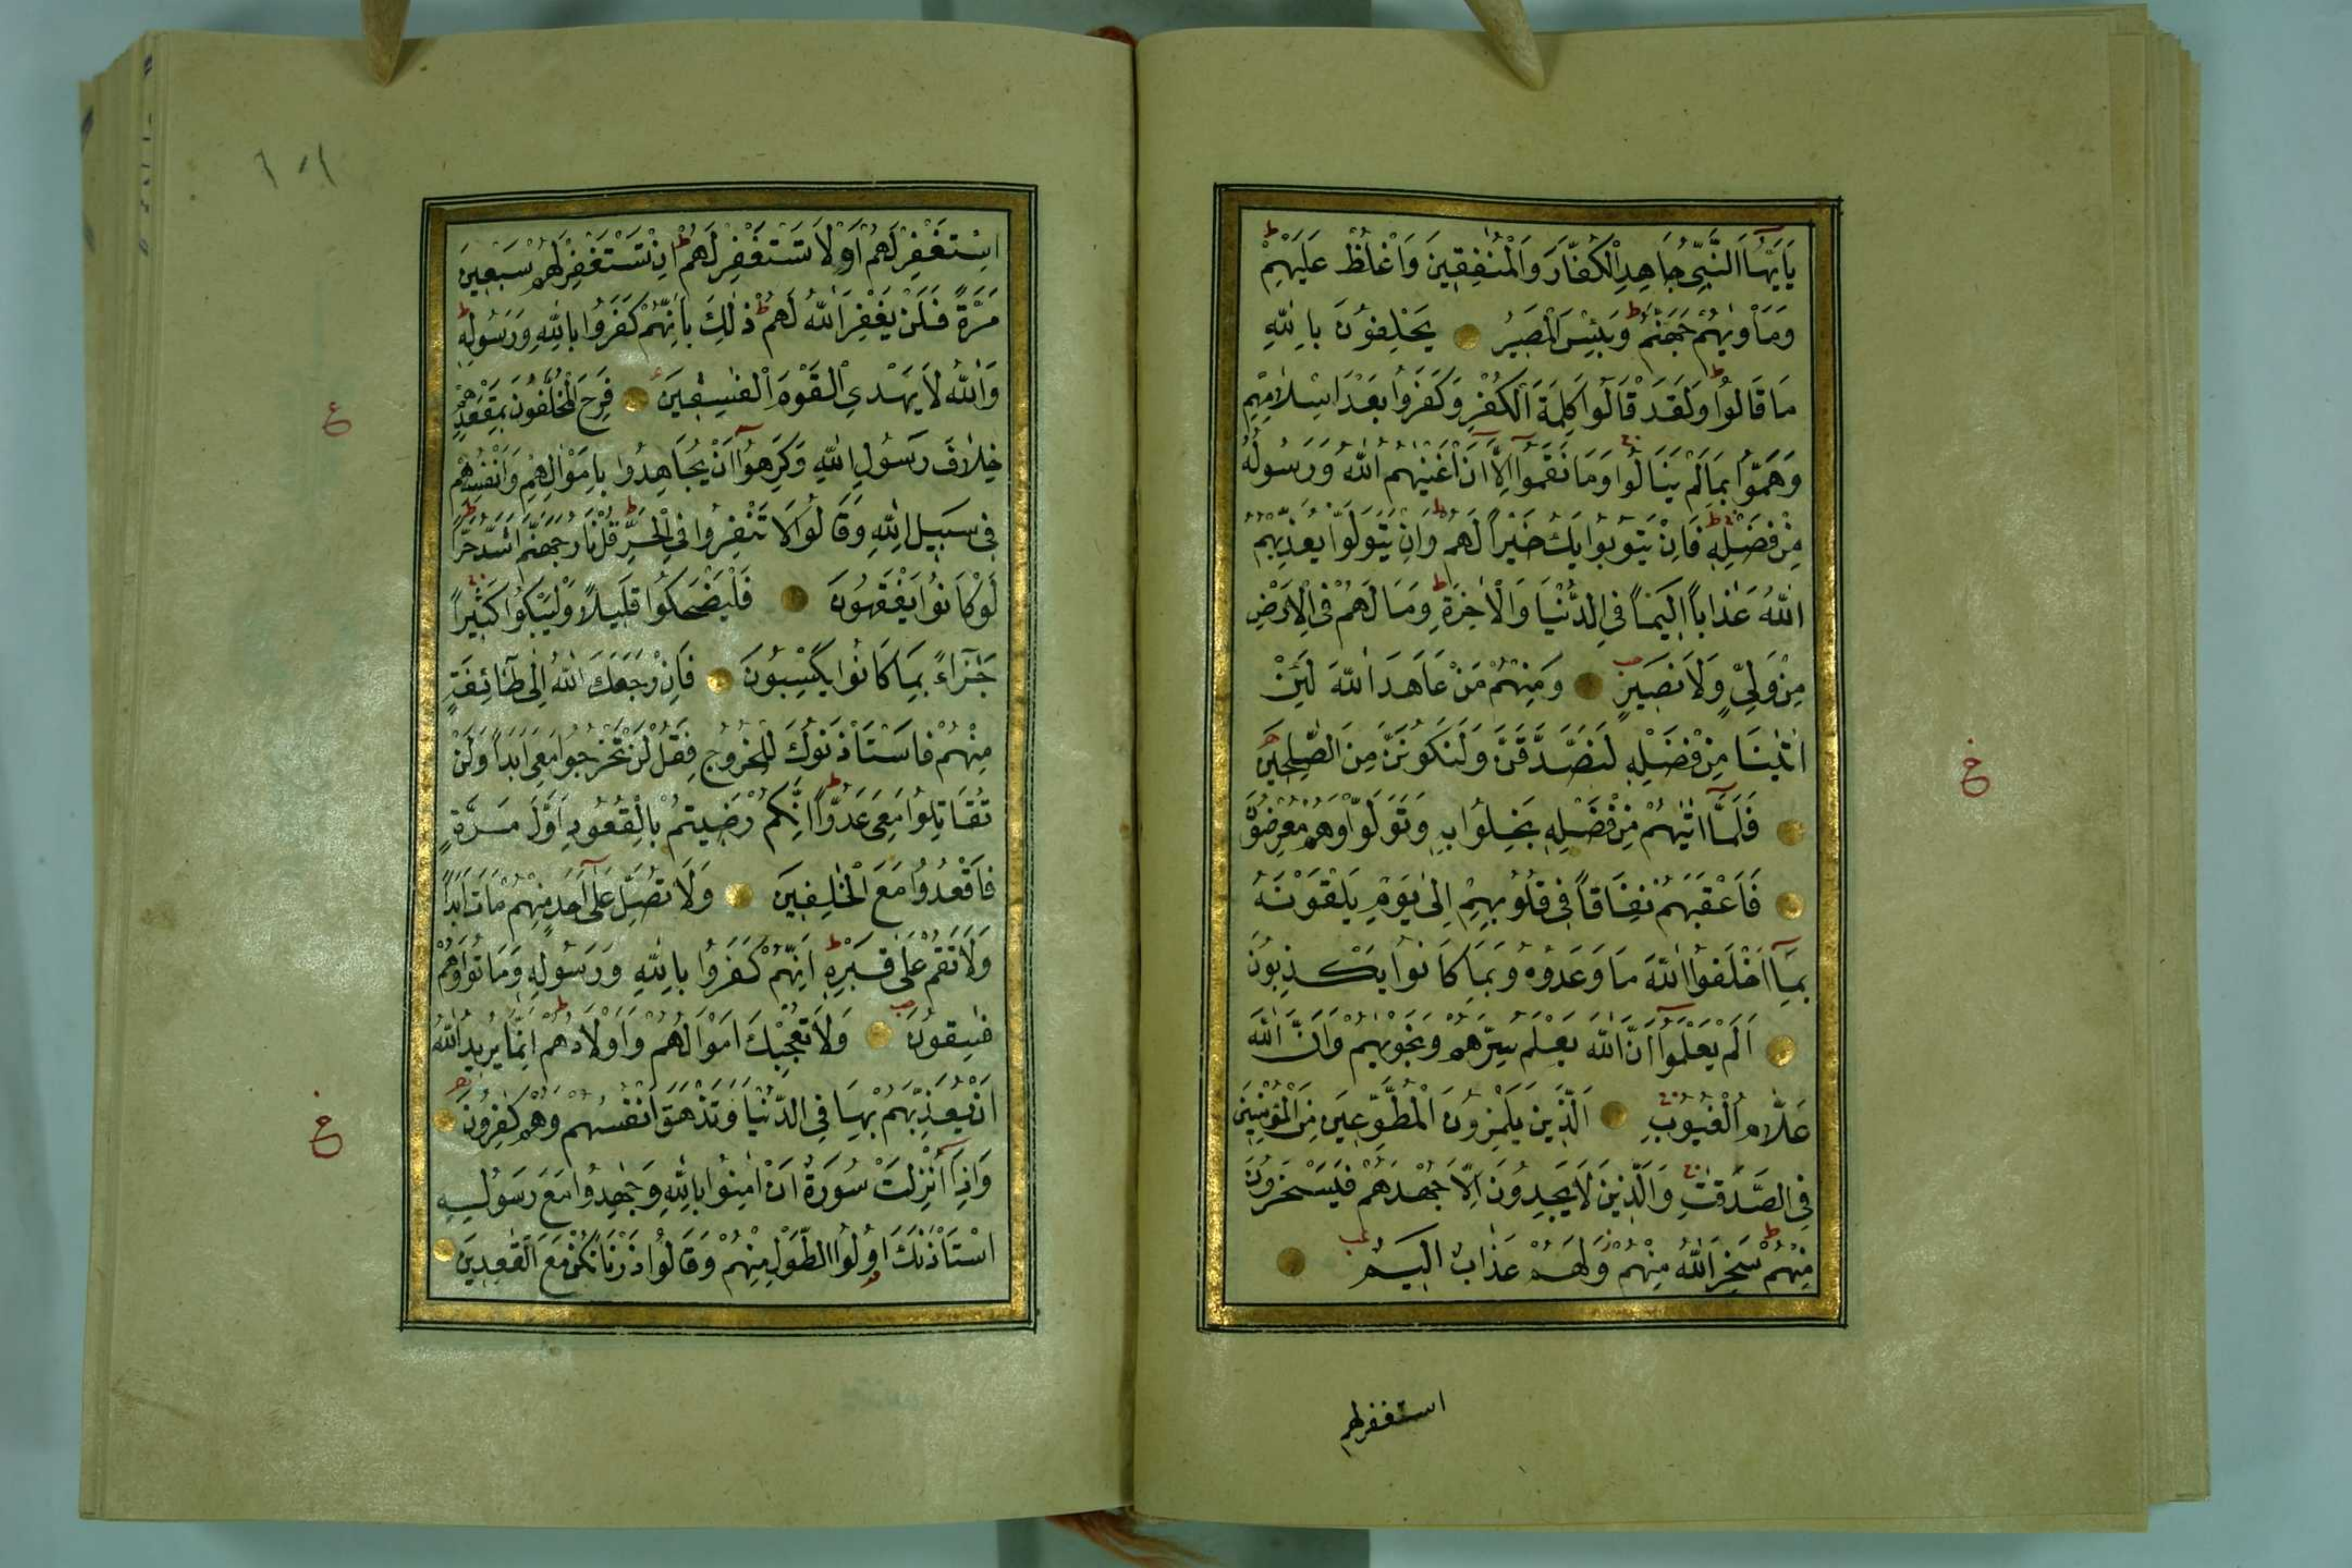 يَا اَيُّهَا النَّبِيُّ جَاهِدِ الْكُفَّارَ وَالْمُنٰفِقِينَ وَاغْلُظْ عَلَيْهِمْ
وَمَأْوٰيهُمْ جَهَنَّمُ وَبِئْسَ الْمَصِيرُ يَحْلِفُونَ بِاللّٰهِ
مَا قَالُوا وَلَقَدْ قَالُوا كَلِمَةَ الْكُفْرِ وَكَفَرُوا بَعْدَ اِسْلَامِهِمْ
وَهَمُّوا بِمَا لَمْ يَنَالُوا وَمَا نَقَمُوا اِلَّا اَنْ اَغْنٰيهُمُ اللّٰهُ وَرَسُولُهُ
مِنْ فَضْلِهِ فَاِنْ يَتُوبُوا يَكُ خَيْرًا لَهُمْ وَاِنْ يَتَوَلَّوْا يُعَذِّبْهُمُ
اللّٰهُ عَذَابًا اَلِيمًا فِي الدُّنْيَا وَالْاٰخِرَةِ وَمَا لَهُمْ فِي الْاَرْضِ
مِنْ وَلِيٍّ وَلَا نَصِيرٍ وَمِنْهُمْ مَنْ عَاهَدَ اللّٰهَ لَئِنْ
اٰتٰينَا مِنْ فَضْلِهِ لَنَصَّدَّقَنَّ وَلَنَكُونَنَّ مِنَ الصّٰلِحِينَ
فَلَمَّا اٰتٰيهُمْ مِنْ فَضْلِهِ بَخِلُوا بِهِ وَتَوَلَّوْا وَهُمْ مُعْرِضُونَ
فَاَعْقَبَهُمْ نِفَاقًا فِي قُلُوبِهِمْ اِلٰى يَوْمِ يَلْقَوْنَهُ
بِمَا اَخْلَفُوا اللّٰهَ مَا وَعَدُوهُ وَبِمَا كَانُوا يَكْذِبُونَ
اَلَمْ يَعْلَمُوا اَنَّ اللّٰهَ يَعْلَمُ سِرَّهُمْ وَنَجْوٰيهُمْ وَاَنَّ اللّٰهَ
عَلَّامُ الْغُيُوبِ اَلَّذِينَ يَلْمِزُونَ الْمُطَّوِّعِينَ مِنَ الْمُؤْمِنِينَ
فِي الصَّدَقٰتِ وَالَّذِينَ لَا يَجِدُونَ اِلَّا جُهْدَهُمْ فَيَسْخَرُونَ
مِنْهُمْ سَخِرَ اللّٰهُ مِنْهُمْ وَلَهُمْ عَذَابٌ اَلِيمٌ
استغفر لهم
اِسْتَغْفِرْ لَهُمْ اَوْ لَا تَسْتَغْفِرْ لَهُمْ اِنْ تَسْتَغْفِرْ لَهُمْ سَبْعِينَ
مَرَّةً فَلَنْ يَغْفِرَ اللّٰهُ لَهُمْ ذٰلِكَ بِاَنَّهُمْ كَفَرُوا بِاللّٰهِ وَرَسُولِهِ
وَاللّٰهُ لَا يَهْدِي الْقَوْمَ الْفٰسِقِينَ فَرِحَ الْمُخَلَّفُونَ بِمَقْعَدِهِمْ
خِلَافَ رَسُولِ اللّٰهِ وَكَرِهُوا اَنْ يُجَاهِدُوا بِاَمْوَالِهِمْ وَاَنْفُسِهِمْ
فِي سَبِيلِ اللّٰهِ وَقَالُوا لَا تَنْفِرُوا فِي الْحَرِّ قُلْ نَارُ جَهَنَّمَ اَشَدُّ حَرًّا
لَوْ كَانُوا يَفْقَهُونَ فَلْيَضْحَكُوا قَلِيلًا وَلْيَبْكُوا كَثِيرًا
جَزَاءً بِمَا كَانُوا يَكْسِبُونَ فَاِنْ رَجَعَكَ اللّٰهُ اِلٰى طَائِفَةٍ
مِنْهُمْ فَاسْتَأْذَنُوكَ لِلْخُرُوجِ فَقُلْ لَنْ تَخْرُجُوا مَعِيَ اَبَدًا وَلَنْ
تُقَاتِلُوا مَعِيَ عَدُوًّا اِنَّكُمْ رَضِيتُمْ بِالْقُعُودِ اَوَّلَ مَرَّةٍ
فَاقْعُدُوا مَعَ الْخٰلِفِينَ وَلَا تُصَلِّ عَلٰى اَحَدٍ مِنْهُمْ مَاتَ اَبَدًا
وَلَا تَقُمْ عَلٰى قَبْرِهِ اِنَّهُمْ كَفَرُوا بِاللّٰهِ وَرَسُولِهِ وَمَاتُوا وَهُمْ
فٰسِقُونَ وَلَا تُعْجِبْكَ اَمْوَالُهُمْ وَاَوْلَادُهُمْ اِنَّمَا يُرِيدُ اللّٰهُ
اَنْ يُعَذِّبَهُمْ بِهَا فِي الدُّنْيَا وَتَزْهَقَ اَنْفُسُهُمْ وَهُمْ كٰفِرُونَ
وَاِذَا اُنْزِلَتْ سُورَةٌ اَنْ اٰمِنُوا بِاللّٰهِ وَجٰهِدُوا مَعَ رَسُولِهِ
اسْتَأْذَنَكَ اُولُوا الطَّوْلِ مِنْهُمْ وَقَالُوا ذَرْنَا نَكُنْ مَعَ الْقٰعِدِينَ